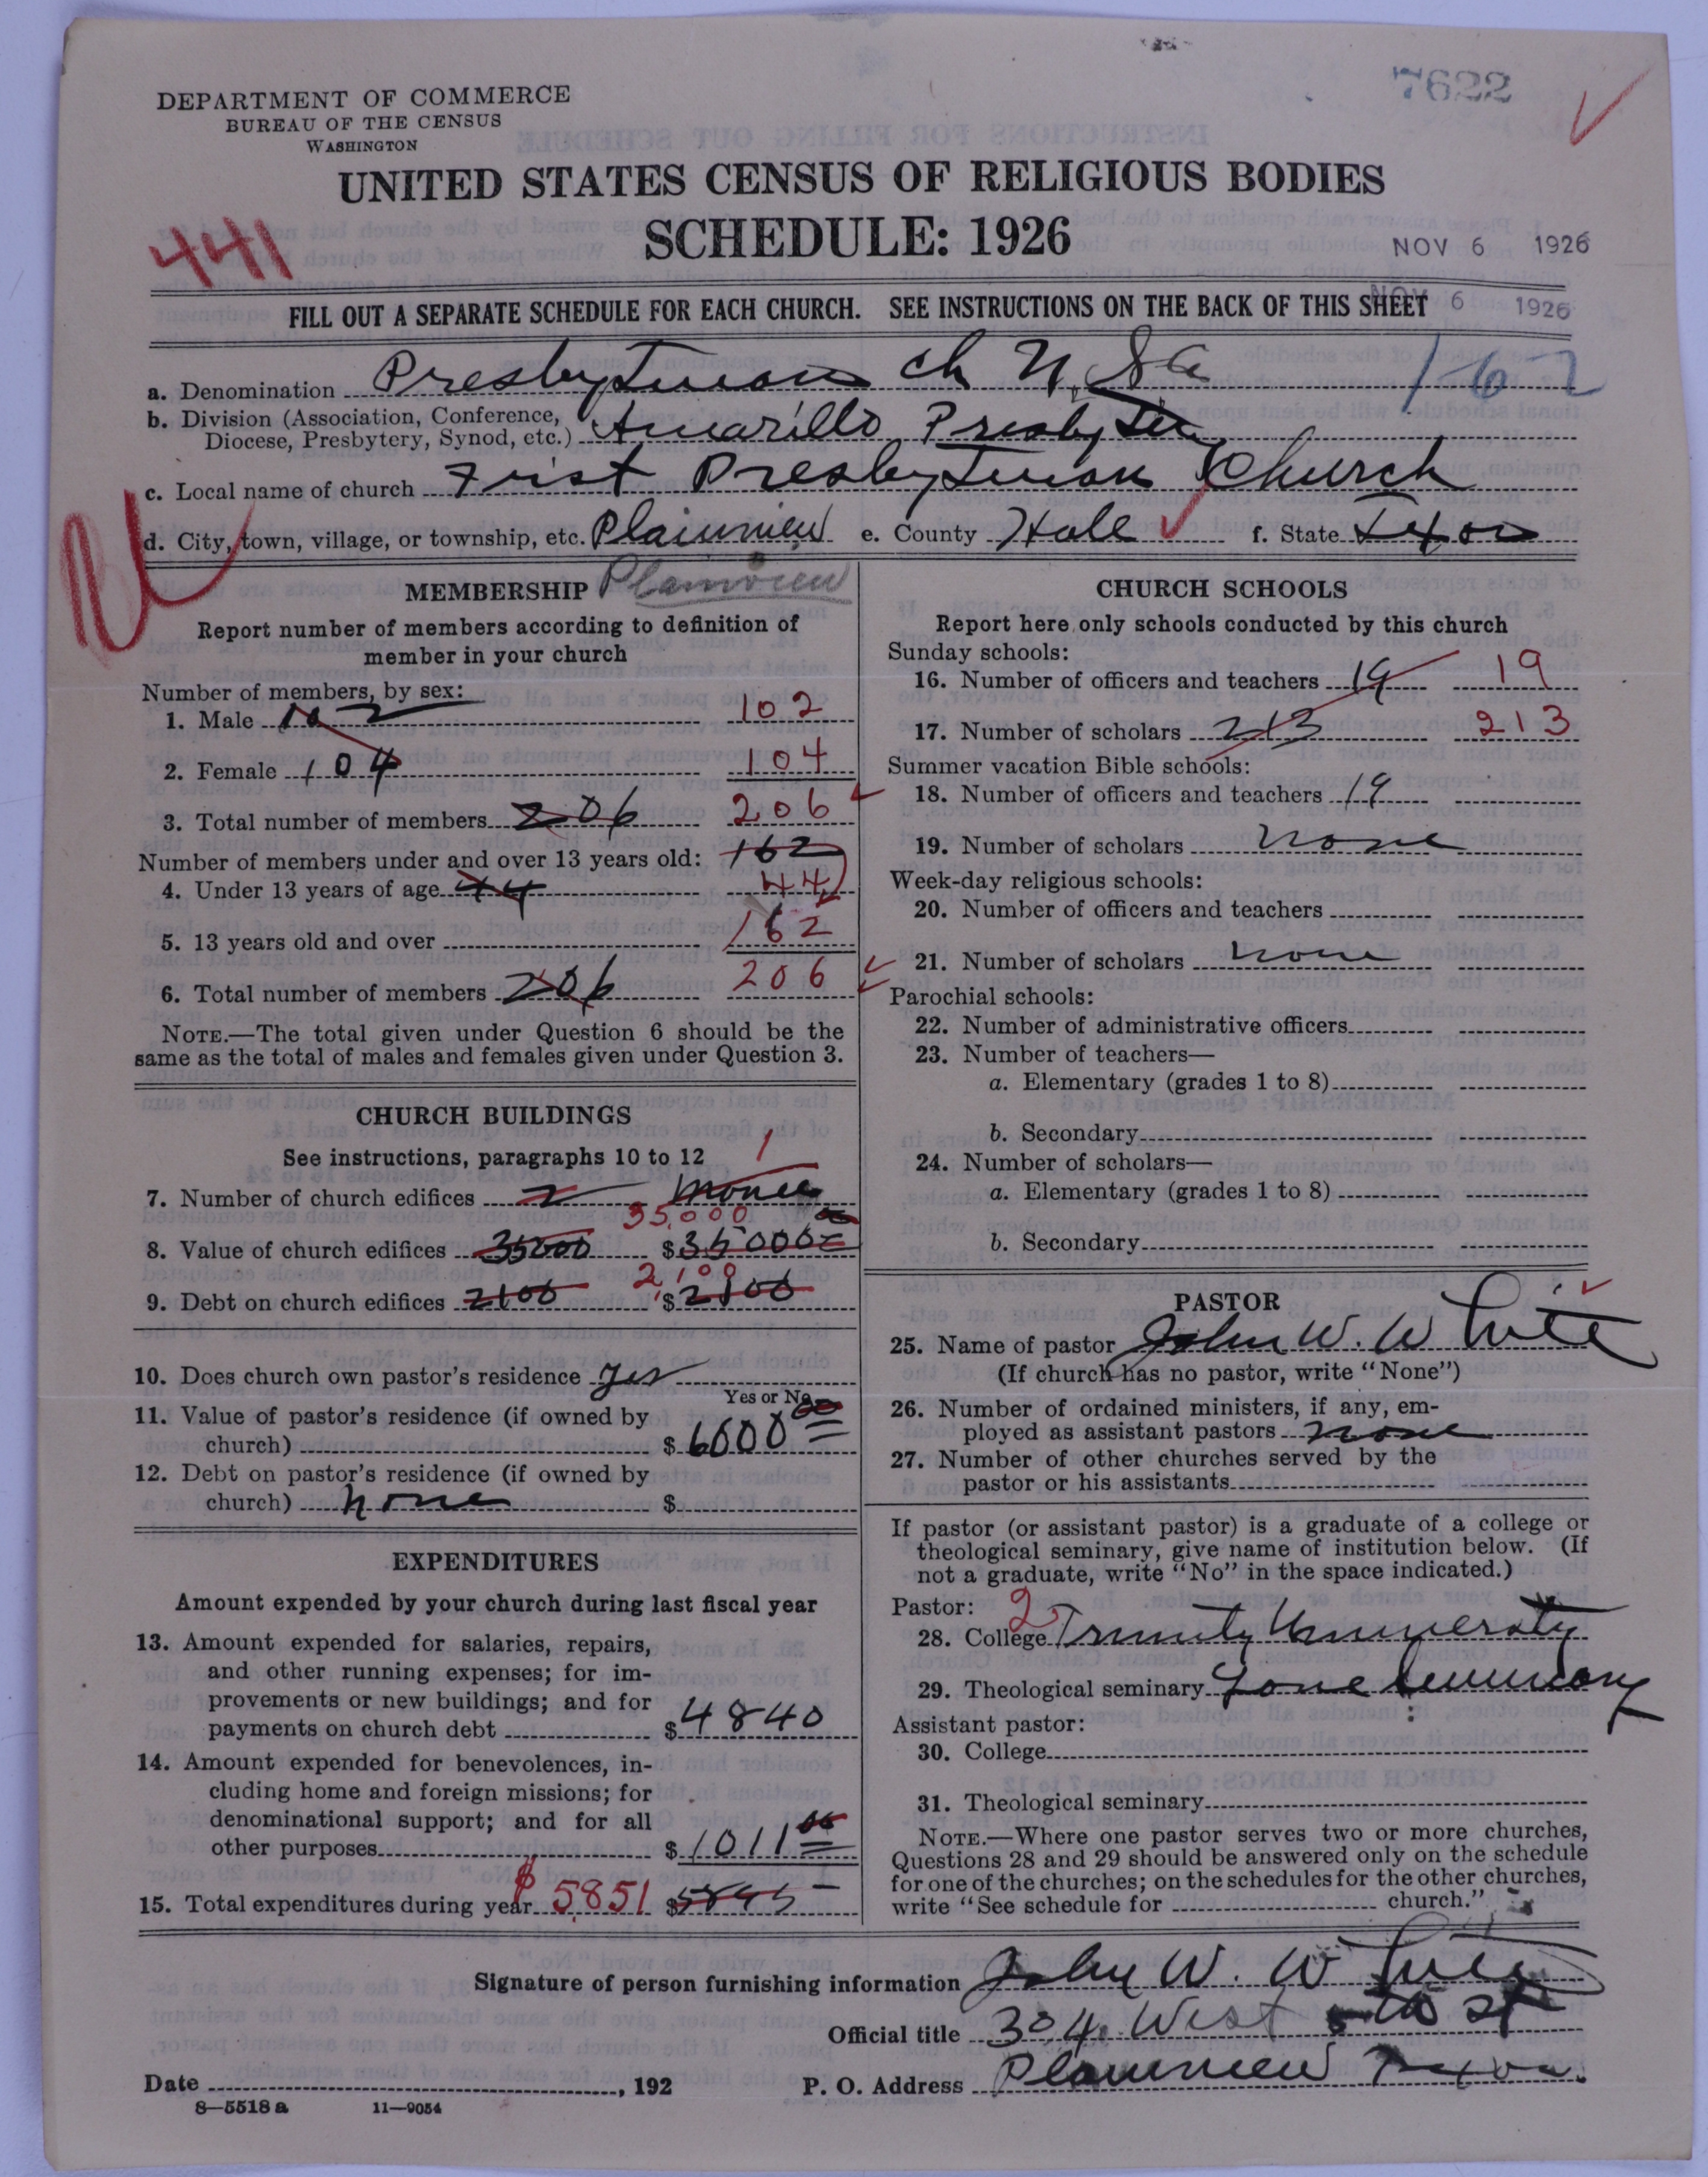 7622
DEPARTMENT OF COMMERCE
BUREAU OF THE CENSUS
WASHINGTON
UNITED STATES CENSUS OF RELIGIOUS BODIES
SCHEDULE: 1926
441
NOV 6 1926
NOV 6 1926
FILL OUT A SEPARATE SCHEDULE FOR EACH CHURCH. SEE INSTRUCTIONS ON THE BACK OF THIS SHEET
a. Denomination Presbyterian ch U.S.A 1-62
b. Division (Association, Conference,
Diocese, Presbytery, Synod, etc.) Amarillo Presbytery
c. Local name of church First Presbyterian Church
d. City, town, village, or township, etc. Plainview e. County Hale f. State Texas
MEMBERSHIP Plainview
Report number of members according to definition of
member in your church
Number of members, by sex:
1. Male 102 102
2. Female 104 104
3. Total number of members 206 206
Number of members under and over 13 years old: 162
4. Under 13 years of age 44 44
5. 13 years old and over 162
6. Total number of members 206 206
NOTE.—The total given under Question 6 should be the
same as the total of males and females given under Question 3.
CHURCH BUILDINGS
See instructions, paragraphs 10 to 12 1
7. Number of church edifices 2
35,000
8. Value of church edifices 35000 $35000 00
2,100
9. Debt on church edifices 2100 $2100
10. Does church own pastor's residence Yes
Yes or No
11. Value of pastor's residence (if owned by
church) $6000 00
12. Debt on pastor's residence (if owned by
church) none $
EXPENDITURES
Amount expended by your church during last fiscal year
13. Amount expended for salaries, repairs,
and other running expenses; for im-
provements or new buildings; and for
payments on church debt $4840
14. Amount expended for benevolences, in-
cluding home and foreign missions; for
denominational support; and for all
other purposes $1011 00
15. Total expenditures during year $5851 $
CHURCH SCHOOLS
Report here only schools conducted by this church
Sunday schools:
16. Number of officers and teachers 19 19
17. Number of scholars 213 213
Summer vacation Bible schools:
18. Number of officers and teachers 19
19. Number of scholars none
Week-day religious schools:
20. Number of officers and teachers
21. Number of scholars none
Parochial schools:
22. Number of administrative officers
23. Number of teachers—
a. Elementary (grades 1 to 8)
b. Secondary
24. Number of scholars—
a. Elementary (grades 1 to 8)
b. Secondary
PASTOR
25. Name of pastor John W. White
(If church has no pastor, write "None")
26. Number of ordained ministers, if any, em-
ployed as assistant pastors none
27. Number of other churches served by the
pastor or his assistants
If pastor (or assistant pastor) is a graduate of a college or
theological seminary, give name of institution below. (If
not a graduate, write "No" in the space indicated.)
Pastor: 2
28. College Trinity University
29. Theological seminary Lane Seminary
Assistant pastor:
30. College
31. Theological seminary
NOTE.—Where one pastor serves two or more churches,
Questions 28 and 29 should be answered only on the schedule
for one of the churches; on the schedules for the other churches,
write "See schedule for church."
Signature of person furnishing information John W. White
Official title 304 West St
Date , 192 P. O. Address Plainview Texas.
8—5518 a 11—9054